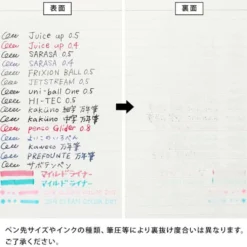 表面
裏面
Cam Juice up 0.5
Cam Juice up 0.4
Cam SARASA 0.5
Cam SARASA 0.4
Cam FRIXION BALL 0.5
Cam JETSTREAM 0.5
Cam uni-ball One 0.5
Cam HI-TEC 0.5
Cam kakuno 細字 万年筆
Cam kakuno 中字 万年筆
Cam ponco Glider 0.8
Cam よいこのいろえん
Cam kaweco 万年筆
Cam PREFOUNTE 万年筆
Cam サボテンペン
マイルドライナー
マイルドライナー
ペン先サイズやインクの種類、筆圧等により裏抜け度合いは異なります。
ご了承ください。